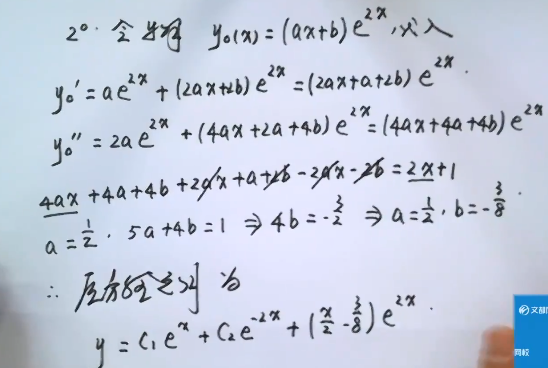 2°. 令 y特 y₀(x) = (ax+b)e^{2x}, 代入
y₀' = ae^{2x} + (2ax+2b)e^{2x} = (2ax+a+2b)e^{2x}.
y₀'' = 2ae^{2x} + (4ax+2a+4b)e^{2x} = (4ax+4a+4b)e^{2x}
4ax + 4a + 4b + 2ax + a + 2b - 2ax - 2b = 2x + 1
a = 1/2. 5a + 4b = 1 ⇒ 4b = -3/2 ⇒ a = 1/2. b = -3/8.
∴ 原方程通解 为
y = C₁e^x + C₂e^{-2x} + (x/2 - 3/8)e^{2x}.
文都